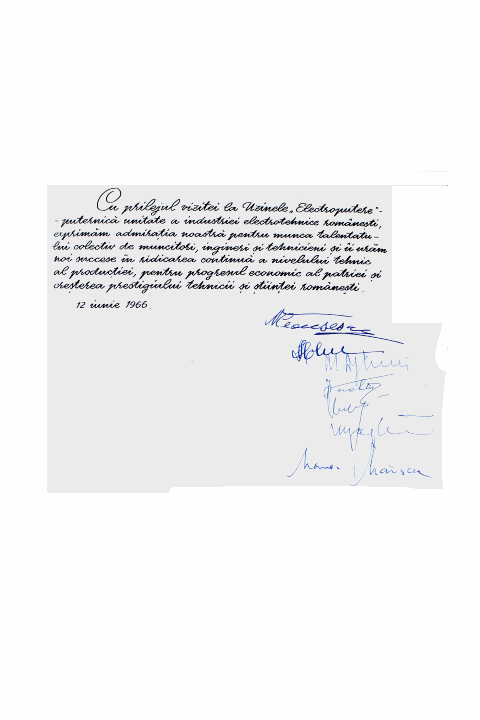 Cu prilejul vizitei la Uzinele „Electroputere"-
- puternică unitate a industriei electrotehnice românești,
exprimăm admirația noastră pentru munca talentatu-
lui colectiv de muncitori, ingineri și tehnicieni și îi urăm
noi succese în ridicarea continuă a nivelului tehnic
al producției, pentru progresul economic al patriei și
creșterea prestigiului tehnicii și științei românești.
12 iunie 1966.
NCeausescu